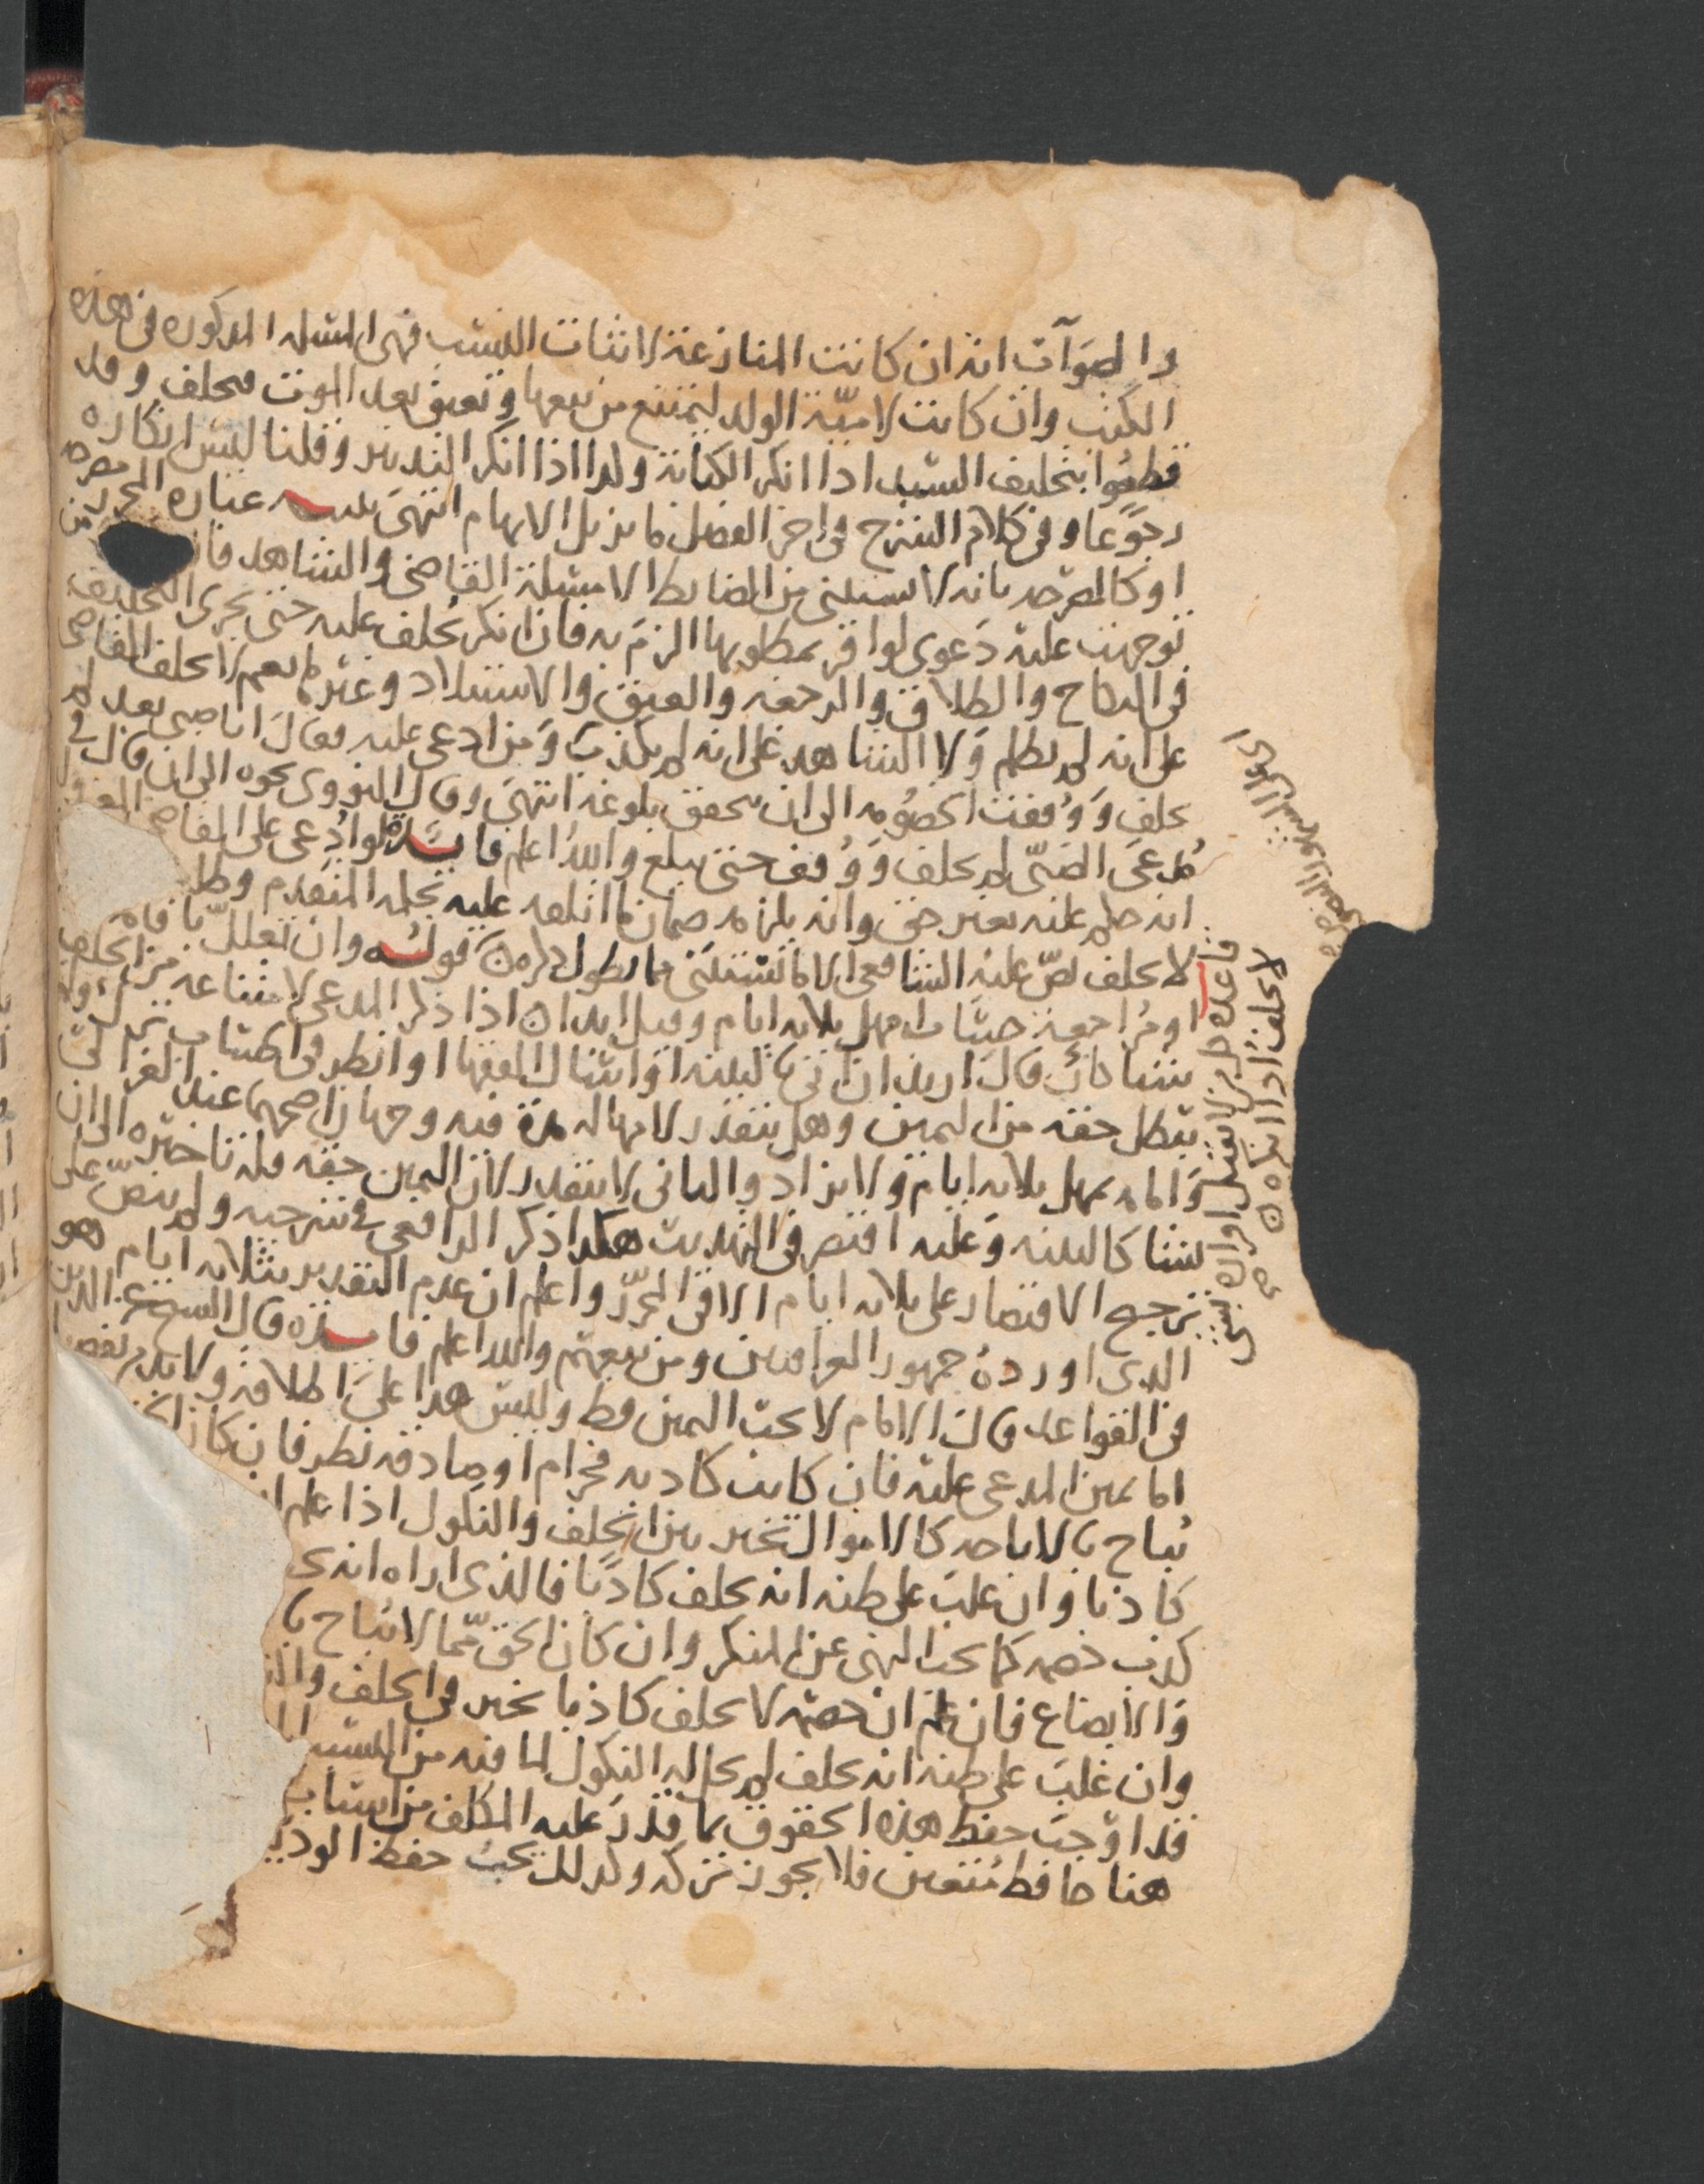 والصوآب انه ان كانت المنازعة لاثبات النسب فهى المسله المذكوره فى هذه
الكتب وان كانت لاميّة الولد ليمتنع من بيعها وتعتق بعد الموت فيحلف وقد
قطعُوا بتحليف السّيد اذا انكر الكتابة ولذا اذا انكر التدبير وقلنا ليس انكاره
رجوًعا وفى كلام الشرح فى اخر الفصل ما يزيل الابهام انتهىَ تنبيه عباره المحرر مصرحه
او كالمصرحه بانه لا يستثنى من الضابط الا مسئلة القاضى والشاهد فان من
توجهت عليه دَعوى لو اقر بمطلوبها الزمَ به فان انكر يُحلف عليه حتى يجرى التحليف
فى النكاح والطلاق والرجعه والعتق والاستيلاد وغيرها نعم لا يحلف القاضى
على انه لم يظلم وَلا الشاهد على انه لم يكذبَ وَمن ادعى عليه فقالَ انا صبى بعد لم
يحلف وَوُقفت الخصُومه الى ان يتحقق بلوغه انتهىَ وقالَ النووى نحوه الى ان قال فى
مُدعىَ الصّبّى لم يحلف وَوُقف حتى يبلغ واللهُ اعلم فايدة لو ادُعى على القاضى المعزول
انه حكم عليه بغير حق وانه يلزمه ضمان ما اتلفه عليه بحكمه المتقدم وطلب
لا يحلف نصّ عليْه الشافعى الا ما نستثنَى مما يطول ذكره قولُه وان تعللّ باقامة
او مُراجعة حسَاب امهل ثلاثه ايام وقيل ابدا اذا ذكر المدعى لامتناعه من الحلف
سَبباً كأن قالَ اريد ان اتى بالبينه اوَ اسال الفقها او انظر فى الحساب تُرك ولا
يبطل حقه من اليمين وهل يتقدر لامهاله مدة فيه وجهان اصحهما عند الغزالى
وَامامه يمهل ثلاثه ايام وَلا يزادَ والثانى لا يتقدر لان اليمين حقه فله تاخيره الى ان
يشا كالبينه وَعليه اقتصر فى التهذيب هكذا ذكر الرافعى فى شرحيه ولم ينصّ على
ترجيح الاقتصار على ثلاثه ايام الا فى المحرّر واعلم ان عدم التقدير بثلاثه ايام هو
الذى اوردهُ جمهور العراقيين ومن تبعهم والله اعلم فايدة قال الشيخ عز الدين
فى القواعد قالَ الامام لا تجب اليمين قط وليس هذا علىَ اطلاقه ولا بد من تفصيل
اما يمين المدعى عليْه فان كانت كاذبه فحرام او صادقه نظر فان كان الحق
يُباح بالاباحه كالاموال تخير بين الحلف والنكول اذا علم ان
كاذبا وان غلبَ على ظنه انه يحلف كاذًبا فالذى اراه انه
كذب خصمه كما يجب النهى عن المنكر وان كان الحق ممّا لا يُباح با
وَالابضاع فان علم ان خصمه لا يحلف كاذبا تخير فى الحلف والن
وان غلبَ على ظنه انه يحلف لم يحل له النكول لما فيه من التسبب
فلذا وَجبَ حفظ هذه الحقوق بما قدرَ عليه المكلف من اسباب
هنا حافظ مُتعين فلا يجوز تركه وكذلك يجبُ حفظ الودي
قاعدة كل من لا يقبل اقراره بشى
لا يحلف اذا انكره